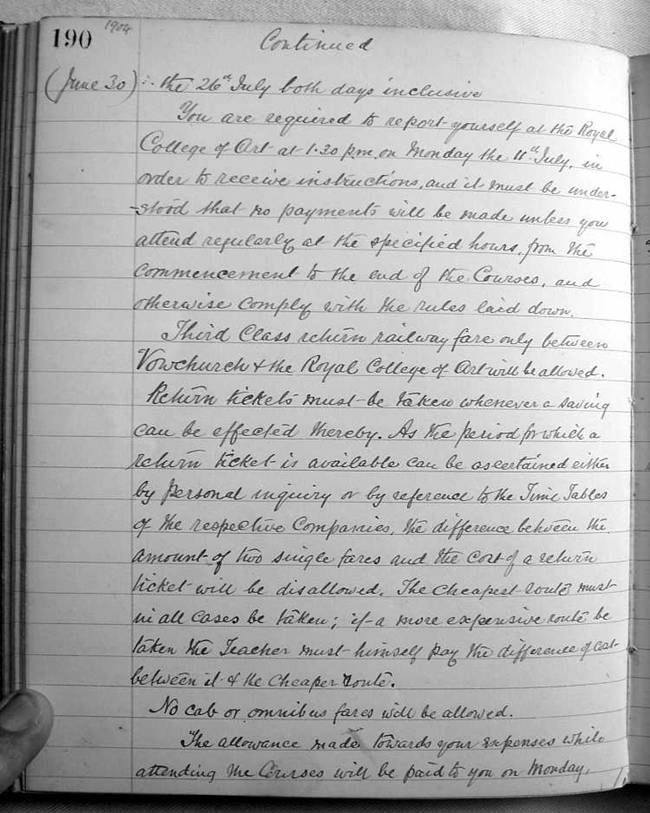 190
1904
Continued
(June 30) :- the 26th July both days inclusive
You are required to report yourself at the Royal
College of Art at 1.30 p.m. on Monday the 11th July, in
order to receive instructions, and it must be under-
-stood that no payments will be made unless you
attend regularly at the specified hours, from the
commencement to the end of the Courses, and
otherwise comply with the rules laid down.
Third Class return railway fare only between
Vowchurch & the Royal College of Art will be allowed.
Return tickets must be taken whenever a saving
can be effected thereby. As the period for which a
return ticket is available can be ascertained either
by personal inquiry or by reference to the Time Tables
of the respective Companies, the difference between the
amount of two single fares and the cost of a return
ticket will be disallowed. The cheapest route must
in all cases be taken; if a more expensive route be
taken the Teacher must himself pay the difference of cost
between it & the cheaper route.
No cab or omnibus fares will be allowed.
The allowance made towards your expenses while
attending the Courses will be paid to you on Monday,